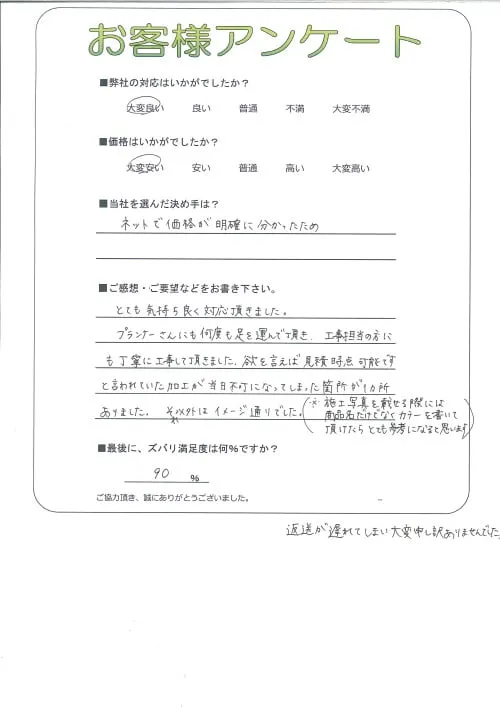 お客様アンケート
■弊社の対応はいかがでしたか？
大変良い 良い 普通 不満 大変不満
■価格はいかがでしたか？
大変安い 安い 普通 高い 大変高い
■当社を選んだ決め手は？
ネットで価格が明確に分かったため
■ご感想・ご要望などをお書き下さい。
とても気持ち良く対応頂きました。
プランナーさんにも何度も足を運んで頂き、工事担当の方に
も丁寧に工事して頂きました。欲を言えば見積時点可能です
と言われていた加工が当日不可になってしまった箇所が1カ所
ありました。それ以外はイメージ通りでした。
※施工写真を載せる際には
商品名だけでなくカラーを書いて
頂けたらとても参考になると思います
■最後に、ズバリ満足度は何％ですか？
90 ％
ご協力頂き、誠にありがとうございました。
返送が遅れてしまい大変申し訳ありませんでした。